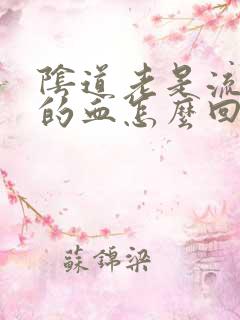 陰道老是流
的血怎麼回
蘇錦梁